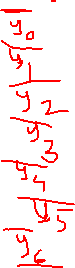 y0
y1
y2
y3
y4
y5
y6